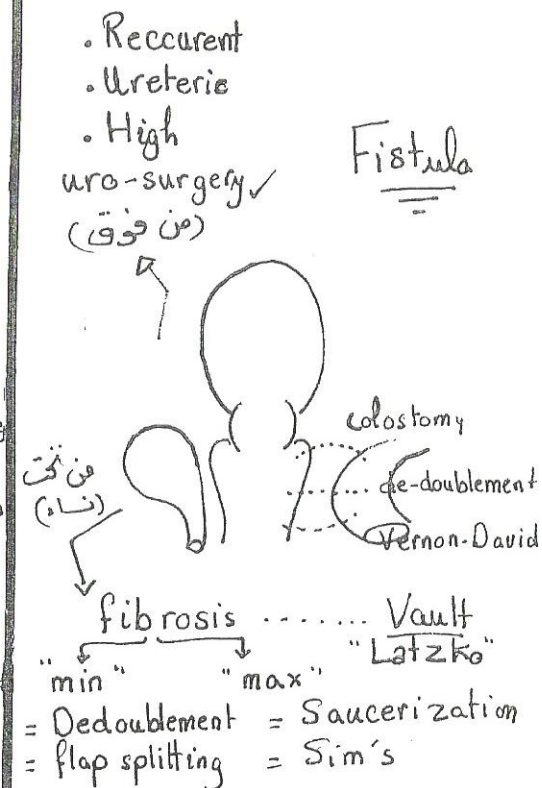 . Reccurent
. Ureteric
. High
uro-surgery ✓
(من فوق)
Fistula
colostomy
de-doublement
Vernon-David
من تحت
(نساء)
fibrosis ....... Vault
"Latzko"
"min" "max"
= Dedoublement = Saucerization
= flap splitting = Sim's